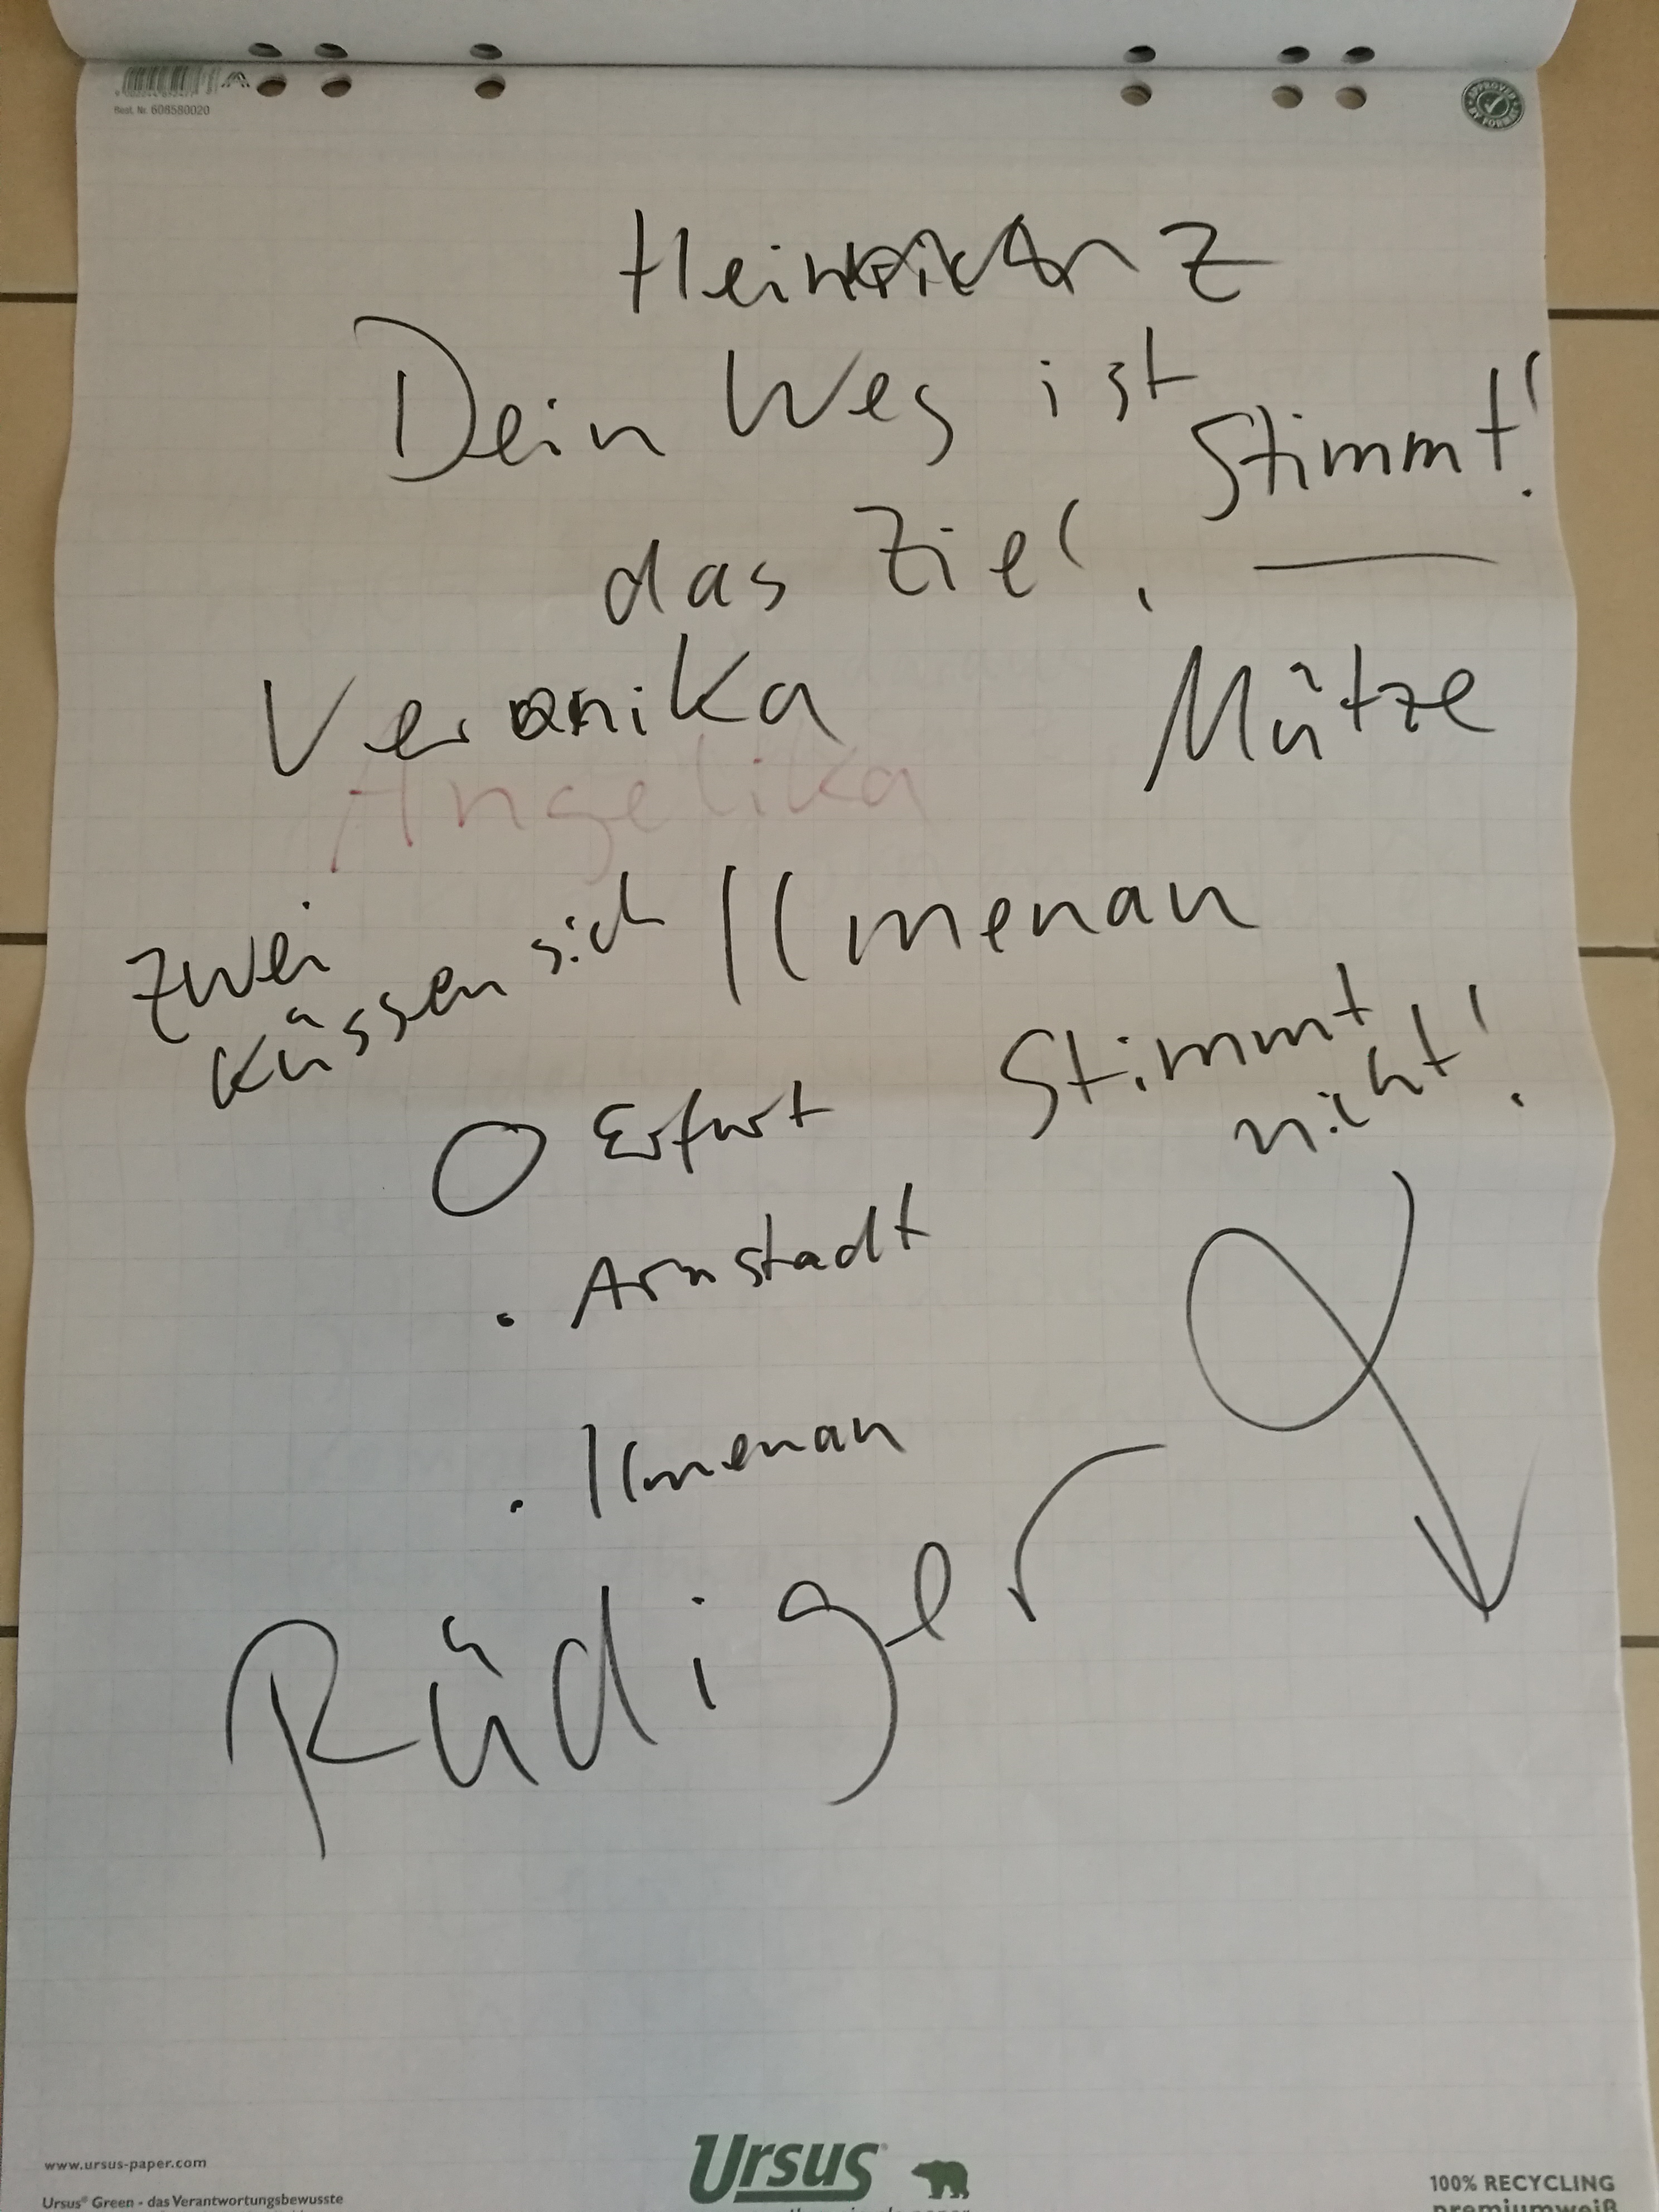 Best. Nr. 608580020
APPROVED BY FORMAT
Z
Dein Weg ist
Stimmt!
das Ziel.
Veronika
Mütze
Angelika
Zwei
küssen sich
Ilmenau
Stimmt
nicht!
Erfurt
. Arnstadt
. Ilmenau
Rüdiger
www.ursus-paper.com
Ursus® Green - das Verantwortungsbewusste
Ursus®
100% RECYCLING
premiumweiß